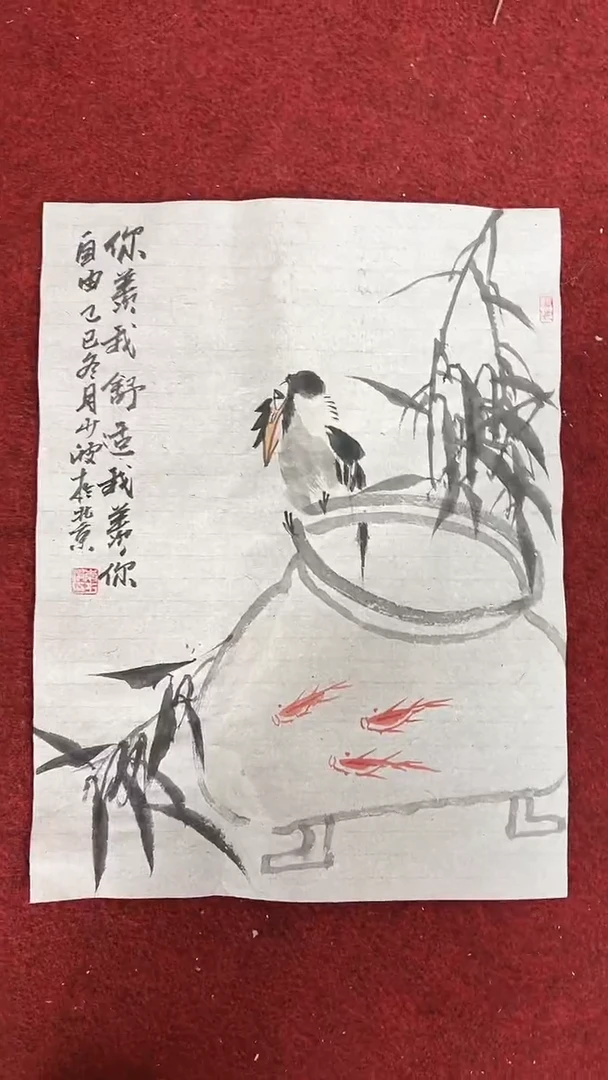 你羡我舒适我羡你
自由乙巳冬月少波于北京